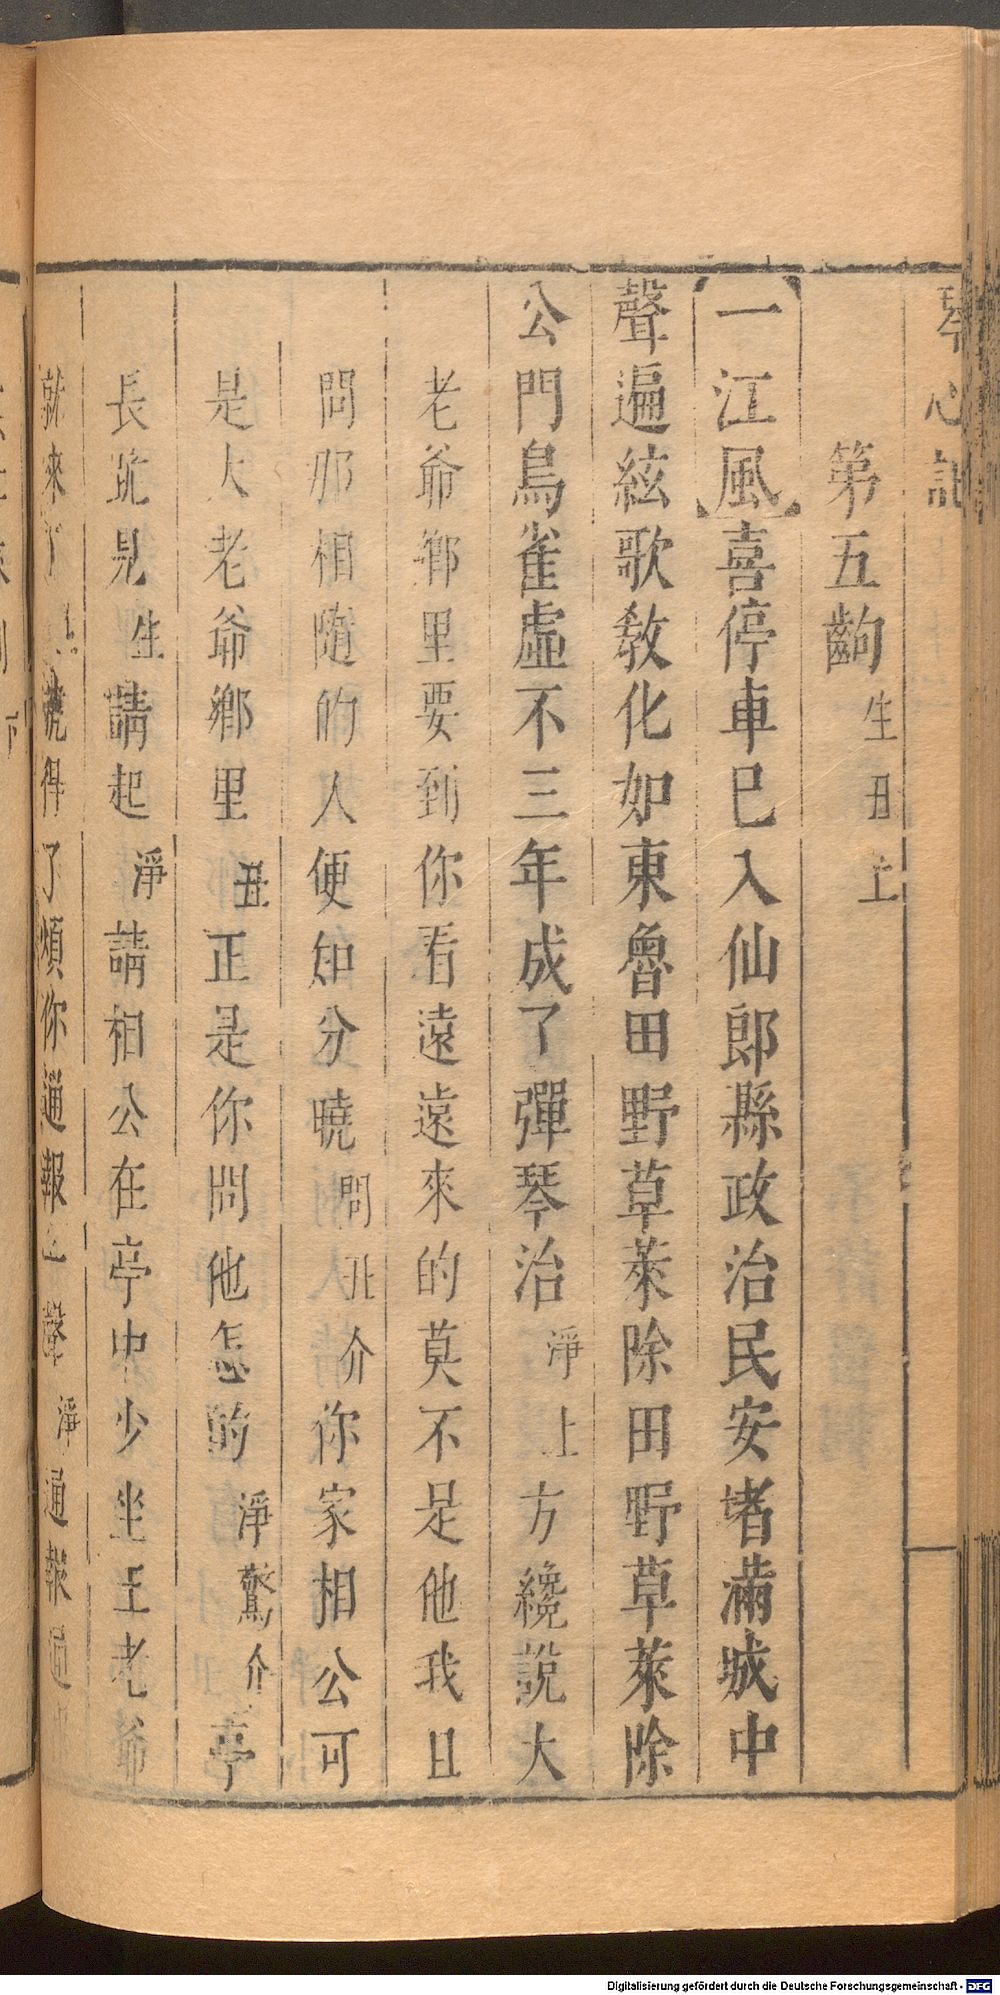 琴心記
第五齣 生丑上
【一江風】喜停車巳入仙郎縣政治民安堵滿城中
聲遍絃歌教化如東魯田野草萊除田野草萊除
公門鳥雀虛不三年成了彈琴治 淨上 方纔說大
老爺鄉里要到你看遠遠來的莫不是他我且
問那相隨的人便知分曉 問丑介 你家相公可
是大老爺鄉里 丑 正是你問他怎的 淨驚介 亭
長跪見 生 請起 淨 請相公在亭中少坐王老爺
就來了 曉得了煩你通報 聲 淨 通報通
Digitalisierung gefördert durch die Deutsche Forschungsgemeinschaft - DFG